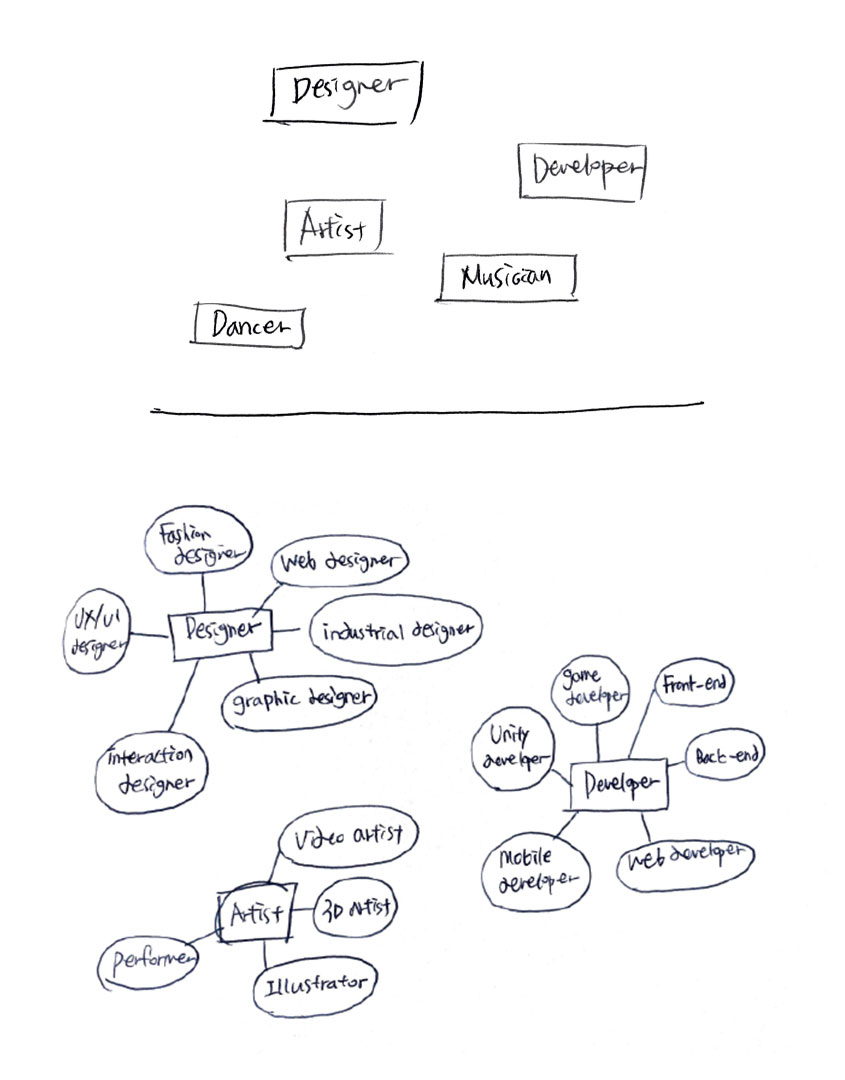 Designer
Developer
Artist
Musician
Dancer
Fashion
designer
Web designer
UX/UI
designer
Designer
industrial designer
graphic designer
interaction
designer
game
developer
Front-end
Unity
developer
Back-end
Developer
Mobile
developer
Web developer
Video artist
3D Artist
Artist
Performer
Illustrator